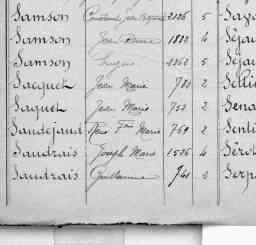 Samson 2126 5 Sazo
Samson Jean Pierre 1822 4 Séjau
Samson Eugène 1262 5 Séjau
Sacquet Jean Marie 780 2 Sellie
Saquet Jean Marie 752 2 Sena
Saudejaud Marie 769 2 Senti
Saudrais Joseph Marie 1526 4 Sérot
Saudrais Guillaume 941 Serp